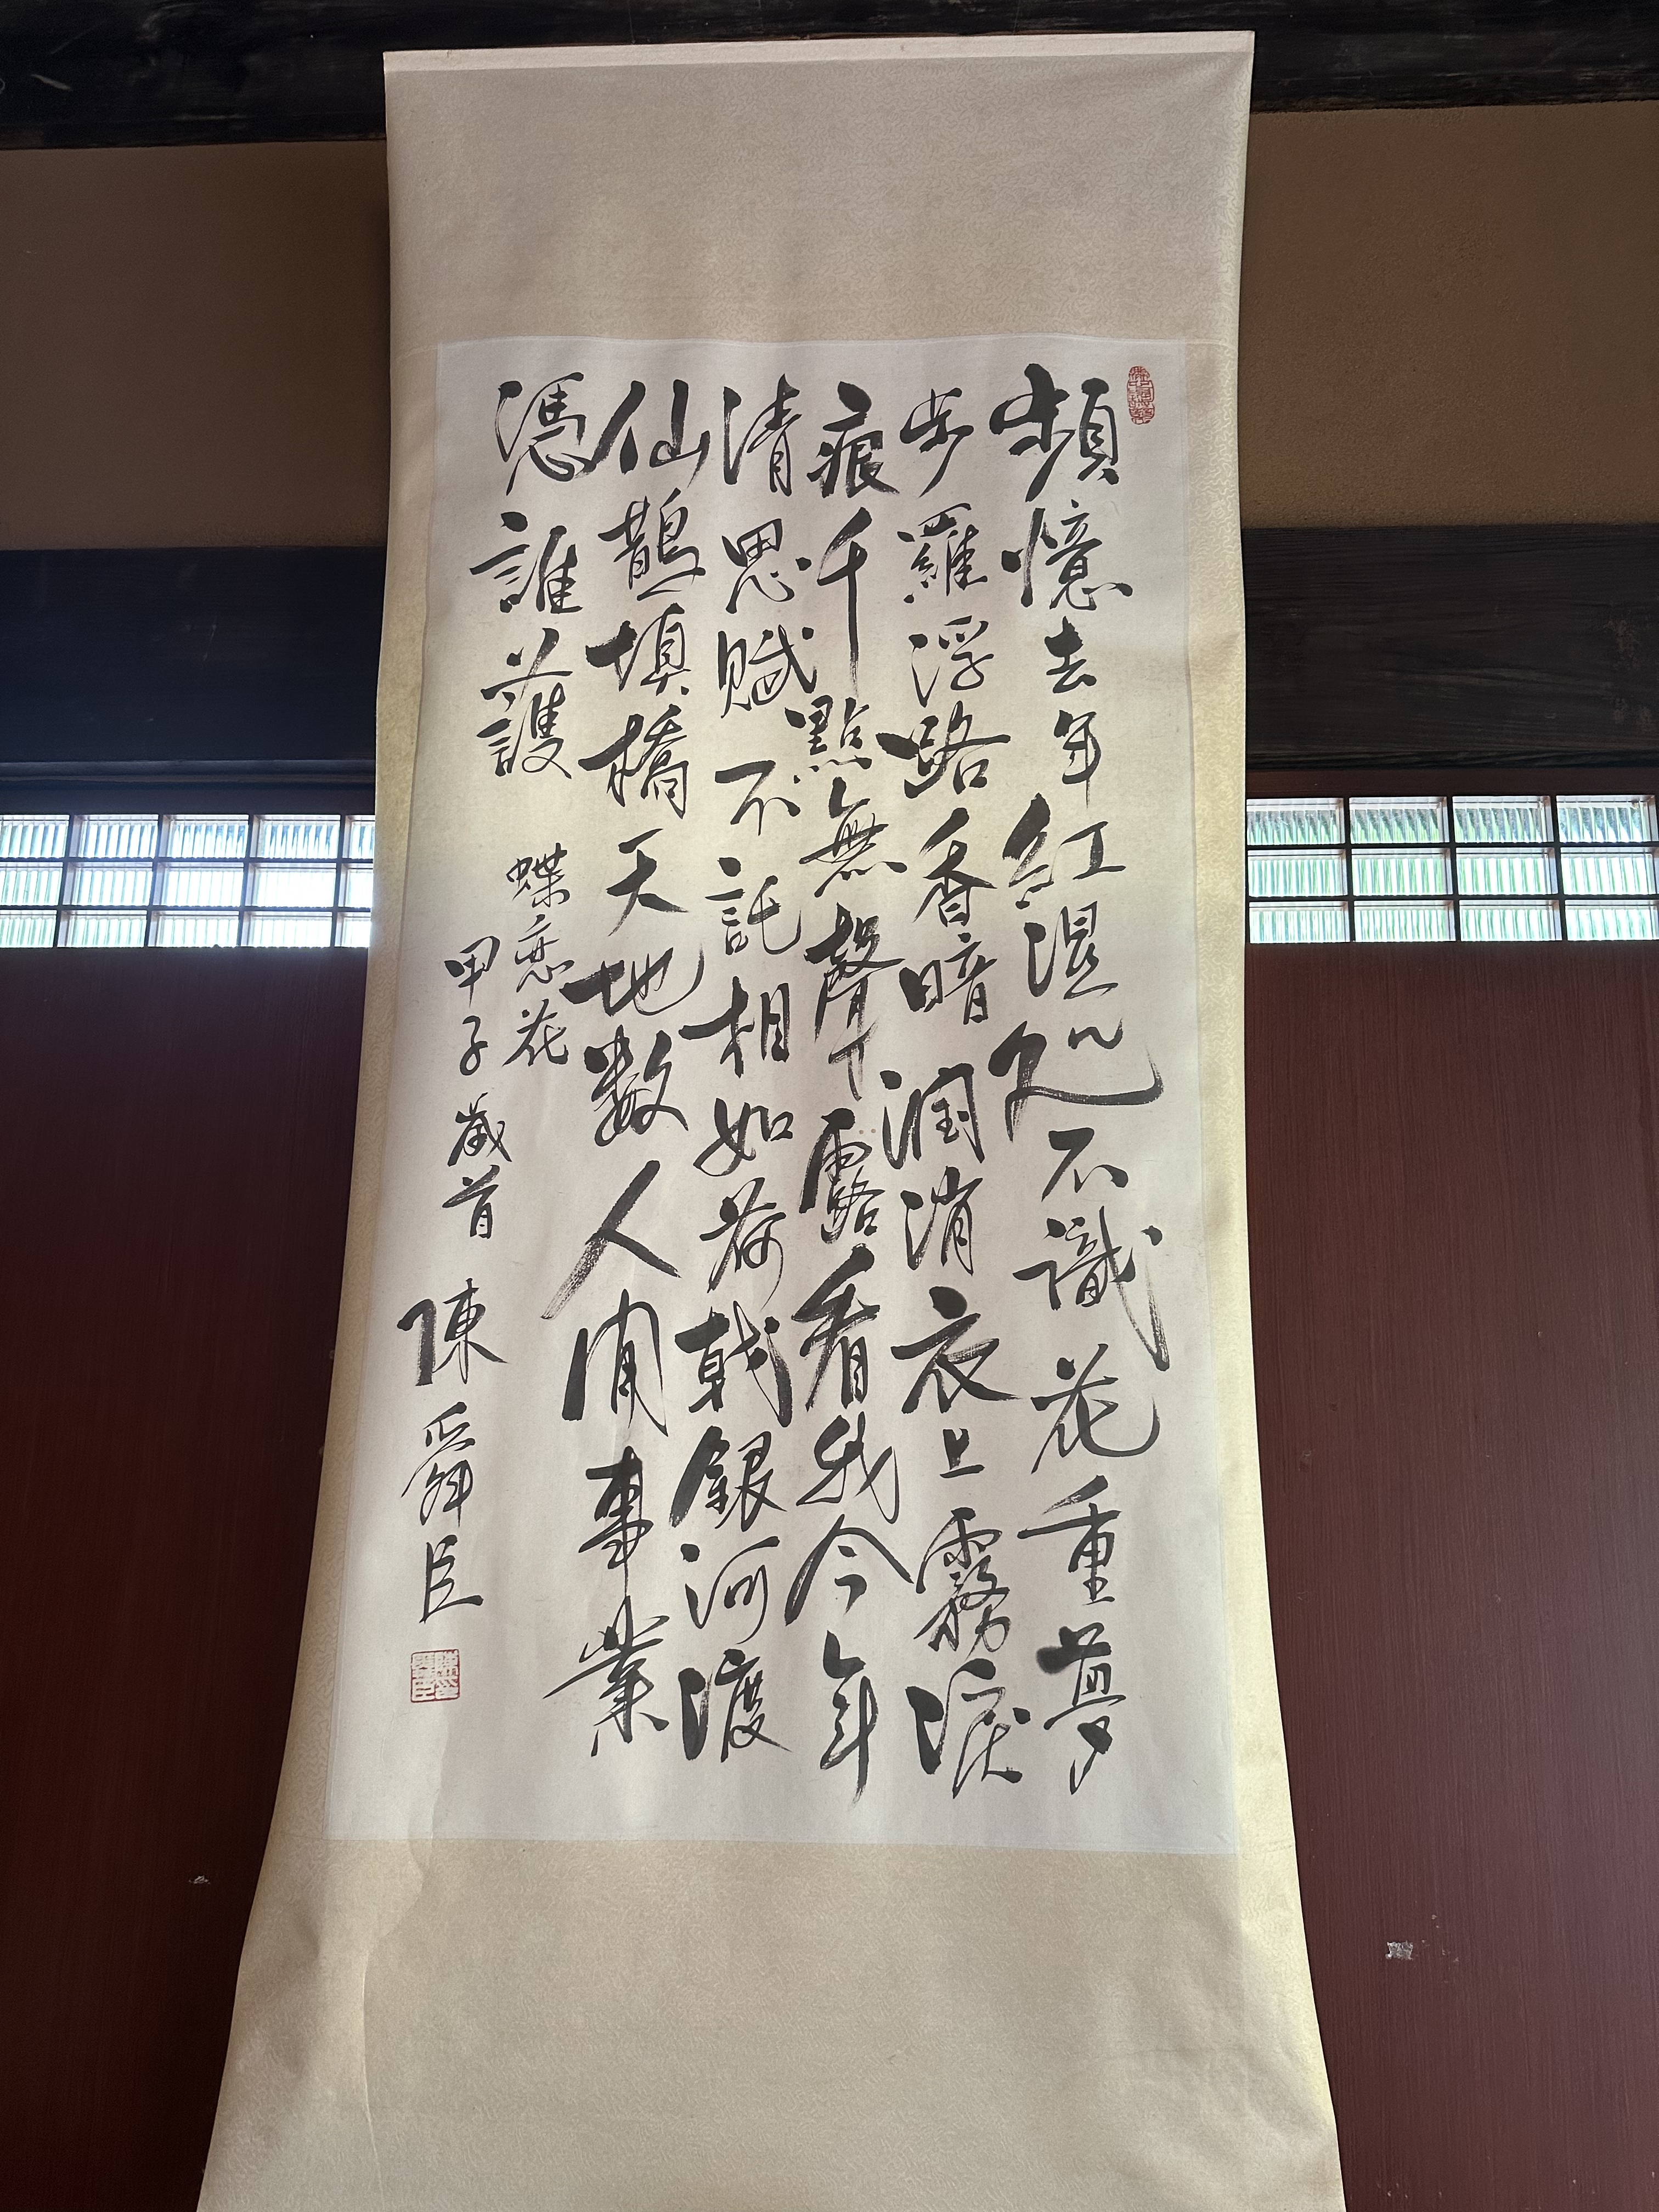 頻憶去年紅濕処不識花重夢
步羅浮路香暗潤消衣上霧淚
痕千點無聲露看我今年
清思賦不託相如荷戟銀河渡
仙鵲填橋天地数人間事業
憑誰護
蝶恋花
甲子歲首 陳舜臣